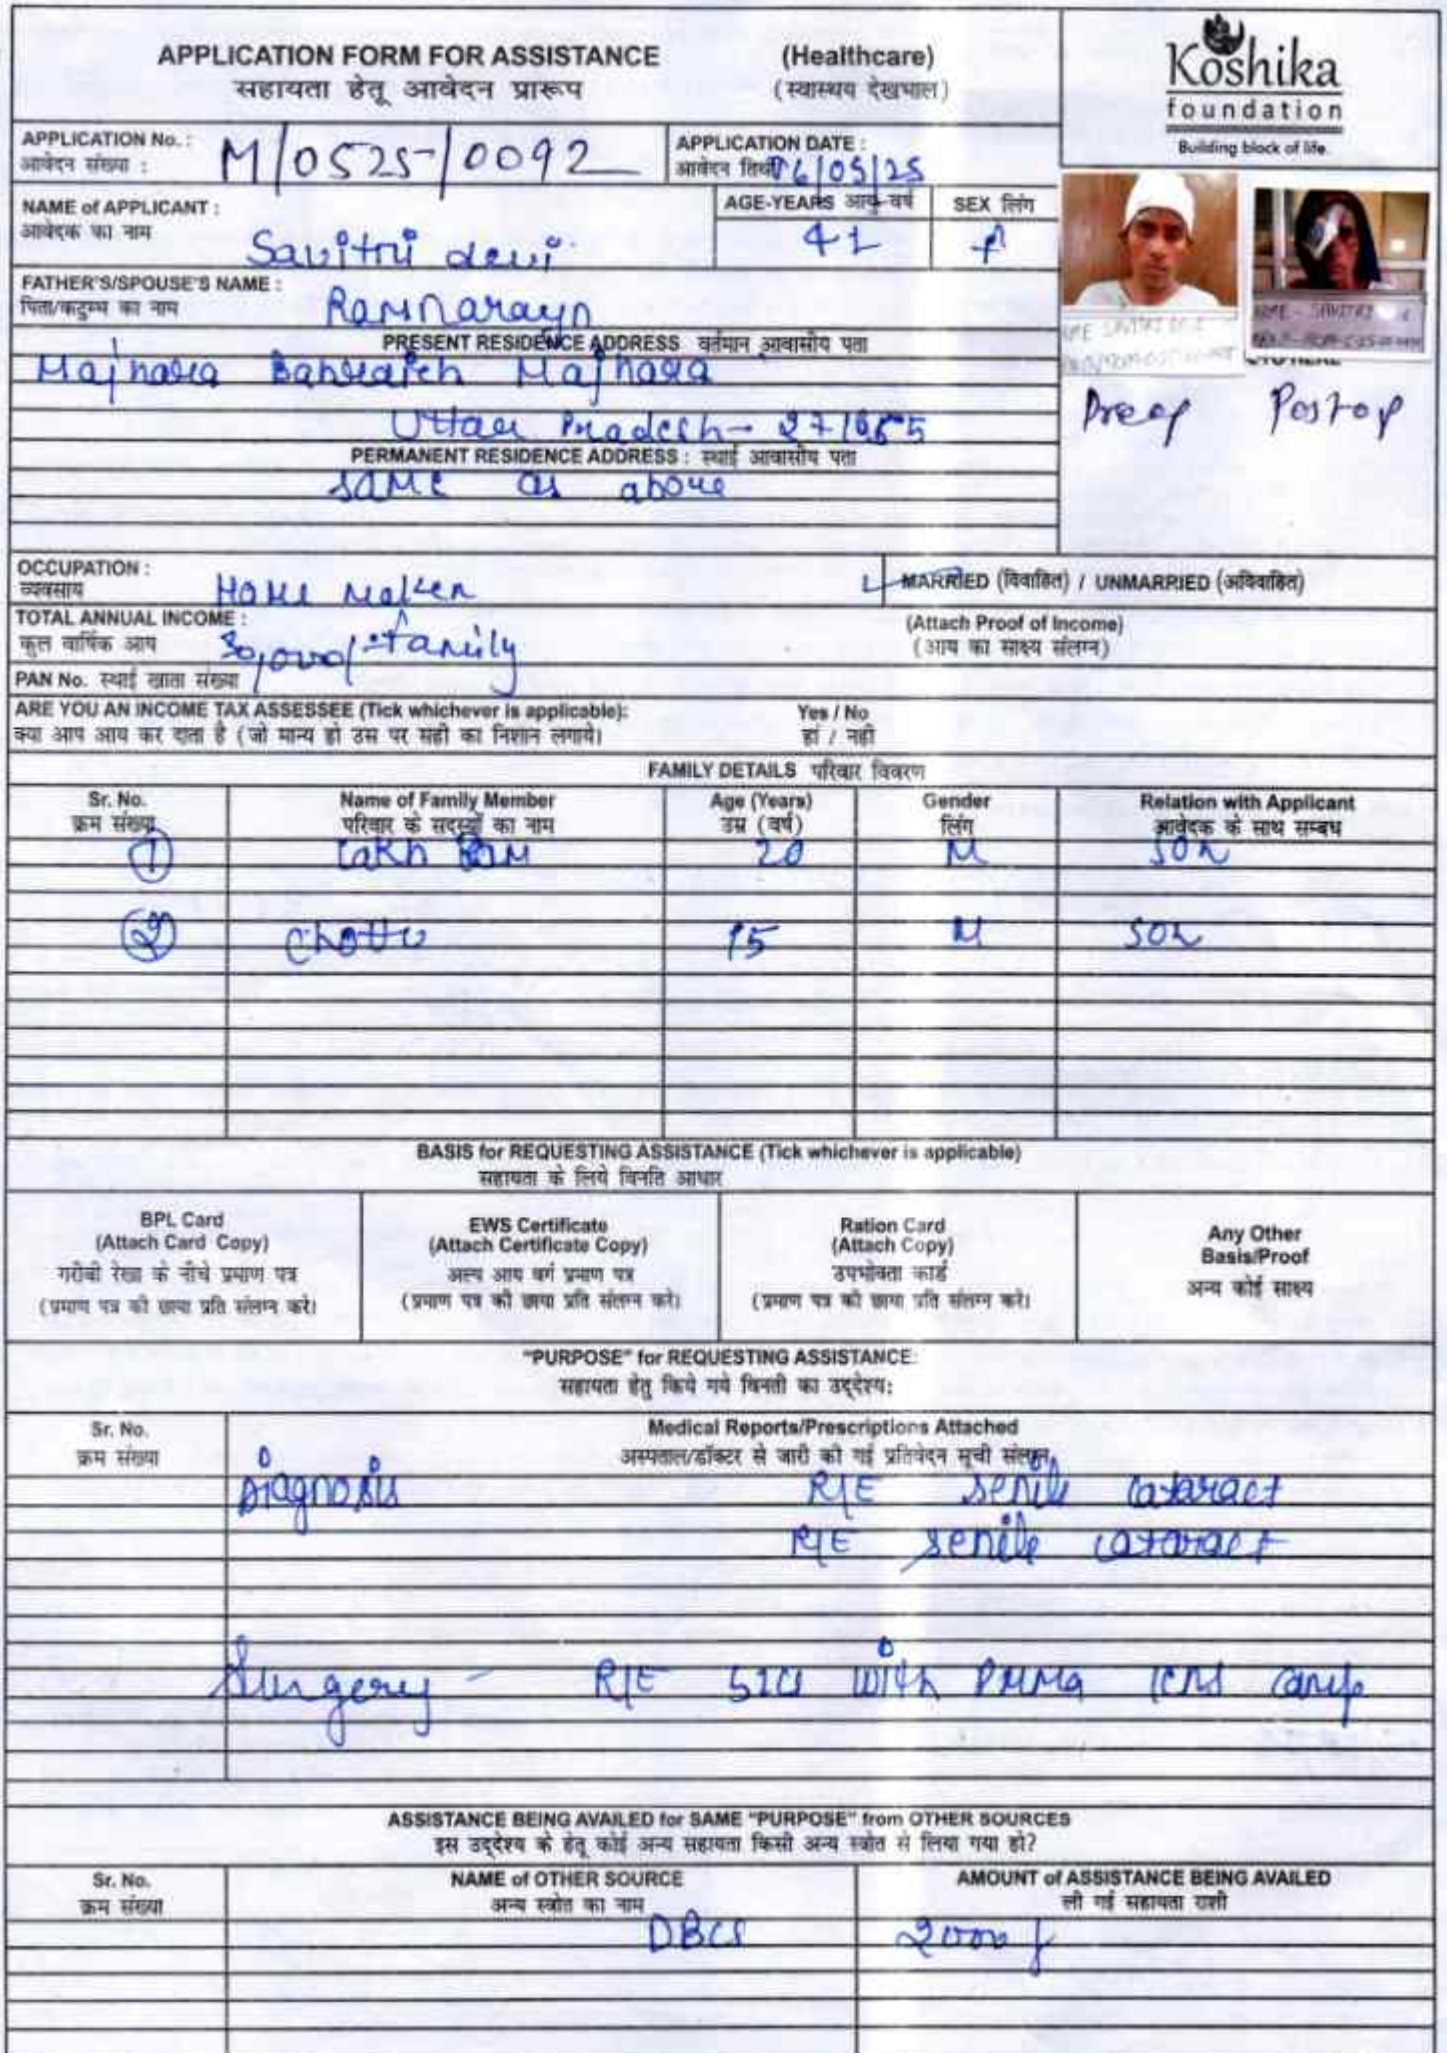 APPLICATION FORM FOR ASSISTANCE (Healthcare)
सहायता हेतू आवेदन प्रारूप (स्वास्थय देखभाल)
Koshika
foundation
Building block of life.
APPLICATION No. : M/0525/0092
आवेदन संख्या :
APPLICATION DATE : 06/05/25
आवेदन तिथी
NAME of APPLICANT : Savitri devi
आवेदक का नाम
AGE-YEARS आयु-वर्ष 41
SEX लिंग f
FATHER'S/SPOUSE'S NAME : Ramnarayn
पिता/कटुम्ब का नाम
PRESENT RESIDENCE ADDRESS वर्तमान आवासीय पता
Majhara Bahraich Majhara
Uttar Pradesh-
PERMANENT RESIDENCE ADDRESS : स्थाई आवासीय पता
same as above
Preop Postop
OCCUPATION : Home Maker
व्यवसाय
MARRIED (विवाहित) / UNMARRIED (अविवाहित)
TOTAL ANNUAL INCOME : family
कुल वार्षिक आय
(Attach Proof of Income)
(आय का साक्ष्य संलग्न)
PAN No. स्थाई खाता संख्या
ARE YOU AN INCOME TAX ASSESSEE (Tick whichever is applicable): Yes / No
क्या आप आय कर दाता है (जो मान्य हो उस पर सही का निशान लगाये। हां / नही
FAMILY DETAILS परिवार विवरण
Sr. No. Name of Family Member Age (Years) Gender Relation with Applicant
क्रम संख्या परिवार के सदस्यों का नाम उम्र (वर्ष) लिंग आवेदक के साथ सम्बध
1 Lakh Ram 20 M son
2 Chottu 15 M son
BASIS for REQUESTING ASSISTANCE (Tick whichever is applicable)
सहायता के लिये विनति आधार
BPL Card
(Attach Card Copy)
गरीबी रेखा के नीचे प्रमाण पत्र
(प्रमाण पत्र की छाया प्रति संलग्न करे।
EWS Certificate
(Attach Certificate Copy)
अल्प आय वर्ग प्रमाण पत्र
(प्रमाण पत्र की छाया प्रति संलग्न करे।
Ration Card
(Attach Copy)
उपभोक्ता कार्ड
(प्रमाण पत्र की छाया प्रति संलग्न करे।
Any Other
Basis/Proof
अन्य कोई साक्ष्य
"PURPOSE" for REQUESTING ASSISTANCE:
सहायता हेतु किये गये विनती का उद्देश्य:
Sr. No. Medical Reports/Prescriptions Attached
क्रम संख्या अस्पताल/डॉक्टर से जारी की गई प्रतिवेदन सूची संलग्न
Diagnosis R/E senile cataract
R/E senile cataract
Surgery - R/E SICS with PMMA lens camp
ASSISTANCE BEING AVAILED for SAME "PURPOSE" from OTHER SOURCES
इस उद्देश्य के हेतू कोई अन्य सहायता किसी अन्य स्त्रोत से लिया गया हो?
Sr. No. NAME of OTHER SOURCE AMOUNT of ASSISTANCE BEING AVAILED
क्रम संख्या अन्य स्त्रोत का नाम ली गई सहायता राशी
DBCS 2000/